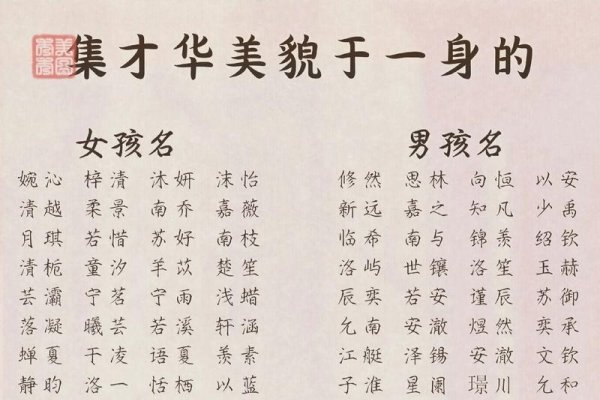 集才华美貌于一身的
女孩名
婉沁 梓清 沐妍 沫怡
清越 柔景 南乔 嘉薇
月琪 若惜 苏好 南枝
清栀 童汐 羊苡 楚笙
芸灞 宁茗 宁雨 浅蜡
落凝 曦芸 若溪 轩涵
蝉夏 干凌 语夏 羡素
静昀 洛一 恬栖 以蓝
男孩名
修然 思林 向恒 以安
新远 嘉之 知凡 少禹
临希 南与 锦羡 绍钦
洛屿 世镶 洛笙 玉赫
辰奕 若安 瑾辰 苏御
允南 安澈 煜然 奕承
江艇 泽锡 安澈 文钦
子淮 星阑 璟川 允和